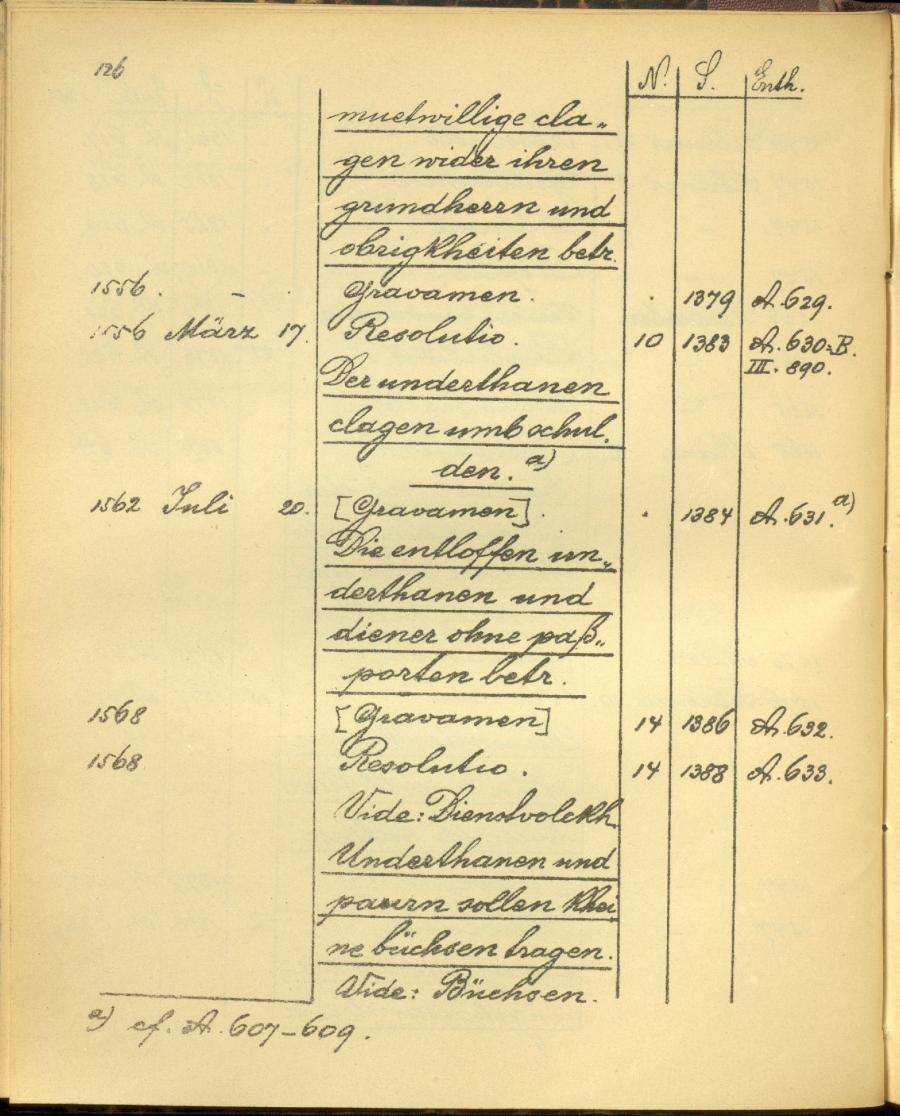 126
N. S. Enth.
muetwillige cla„
gen wider ihren
grundherrn und
obrigkheiten betr.
1556. – . Gravamen. . 1379 A. 629.
1556 März 17. Resolutio. 10 1383 A. 630=B.
III. 890.
Der underthanen
clagen umb schul.
den. a)
1562 Juli 20. [Gravamen]. . 1384 A. 631. a)
Die entloffen un„
derthanen und
diener ohne paß„
porten betr.
1568 [Gravamen] 14 1386 A. 632.
1568. Resolutio. 14 1388 A. 633.
Vide: Dienstvolckh
Underthanen und
paurn sollen khei
ne büchsen tragen.
Vide: Büchsen.
a) cf. A. 607–609.